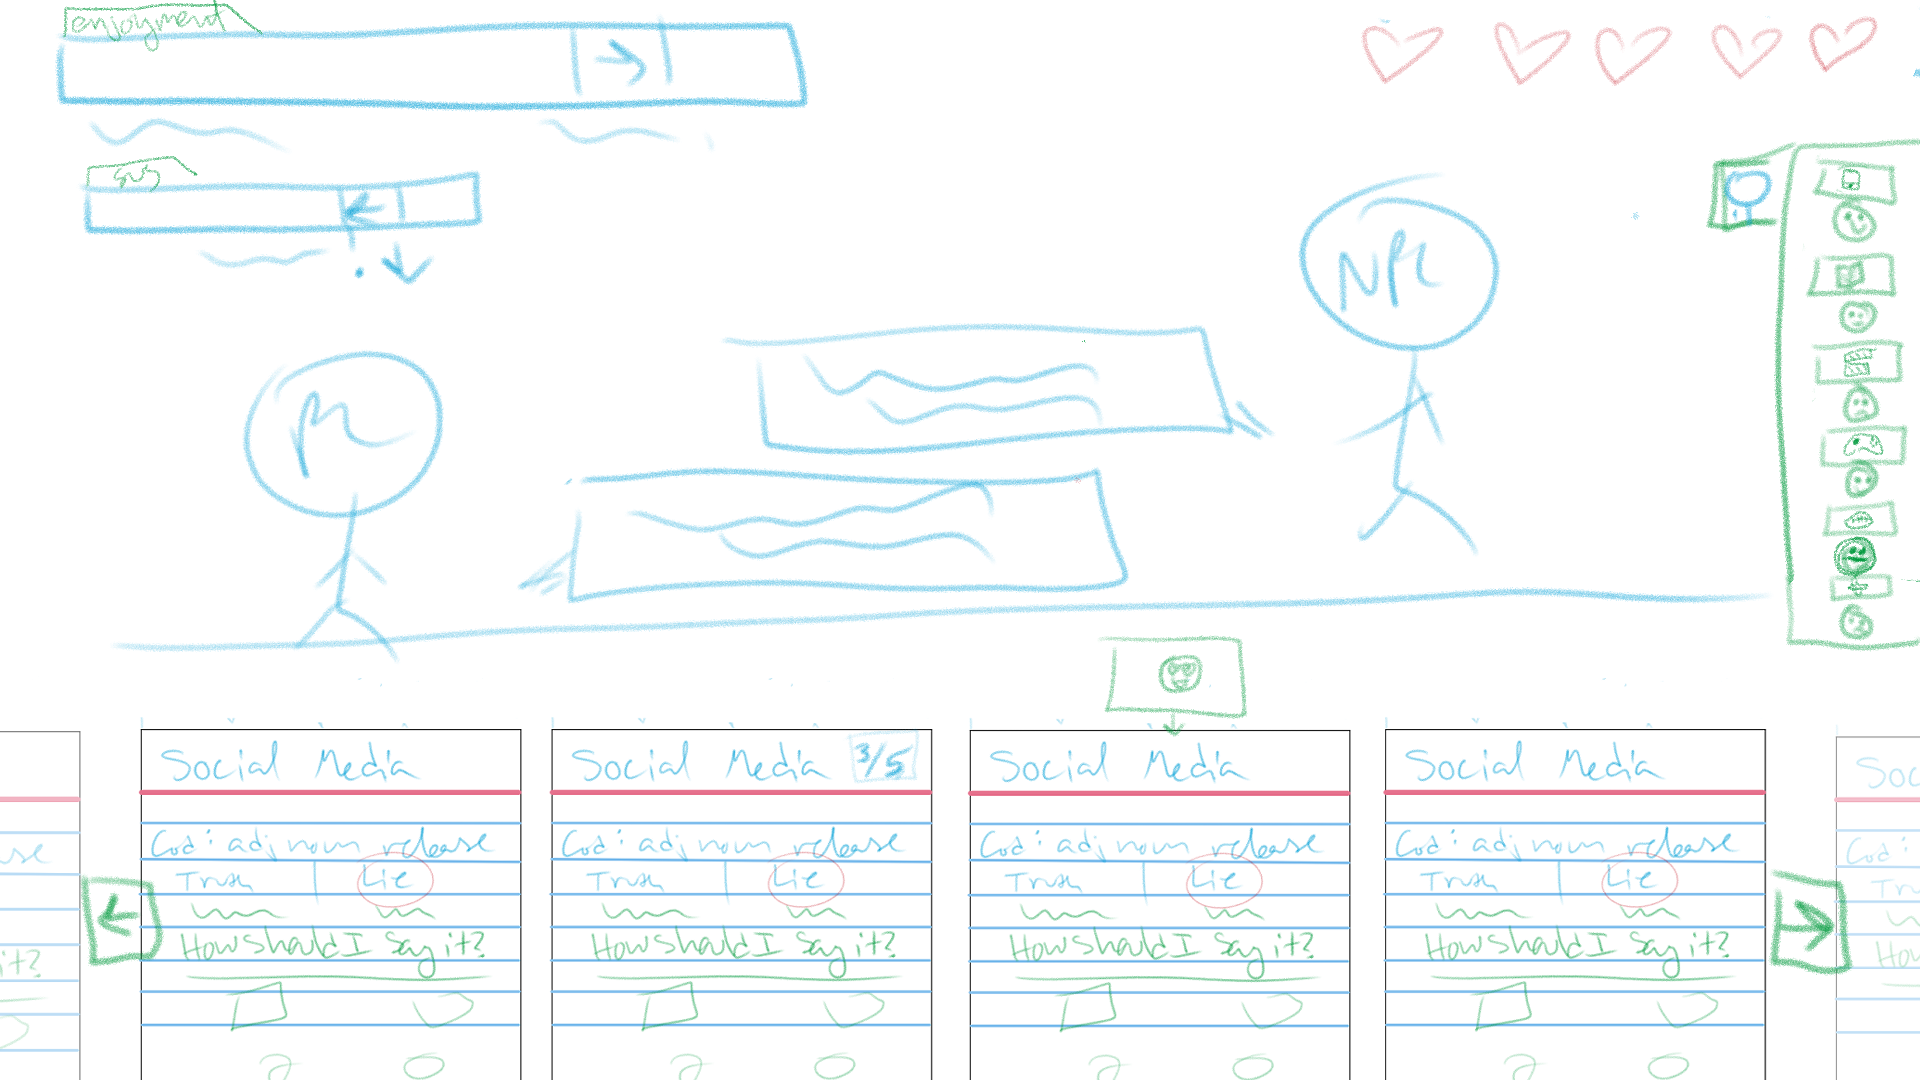 enjoyment
sus
NPC
Social Media
Cod: adj noun release
Truth | Lie
How should I say it?
Social Media 3/5
Cod: adj noun release
Truth | Lie
How should I say it?
Social Media
Cod: adj noun release
Truth | Lie
How should I say it?
Social Media
Cod: adj noun release
Truth | Lie
How should I say it?
Soc
Cod:
Tr
How
it?